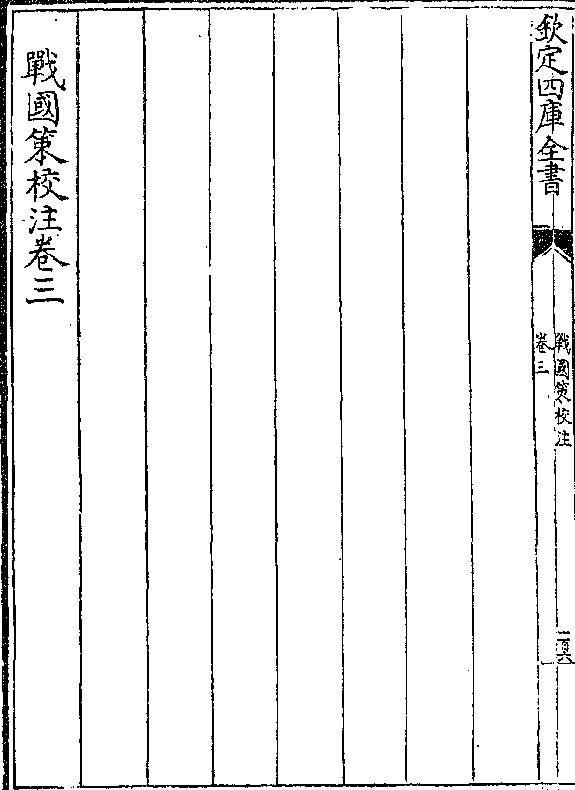 欽定四庫全書
戰國策校注
卷三
戰國策校注卷三